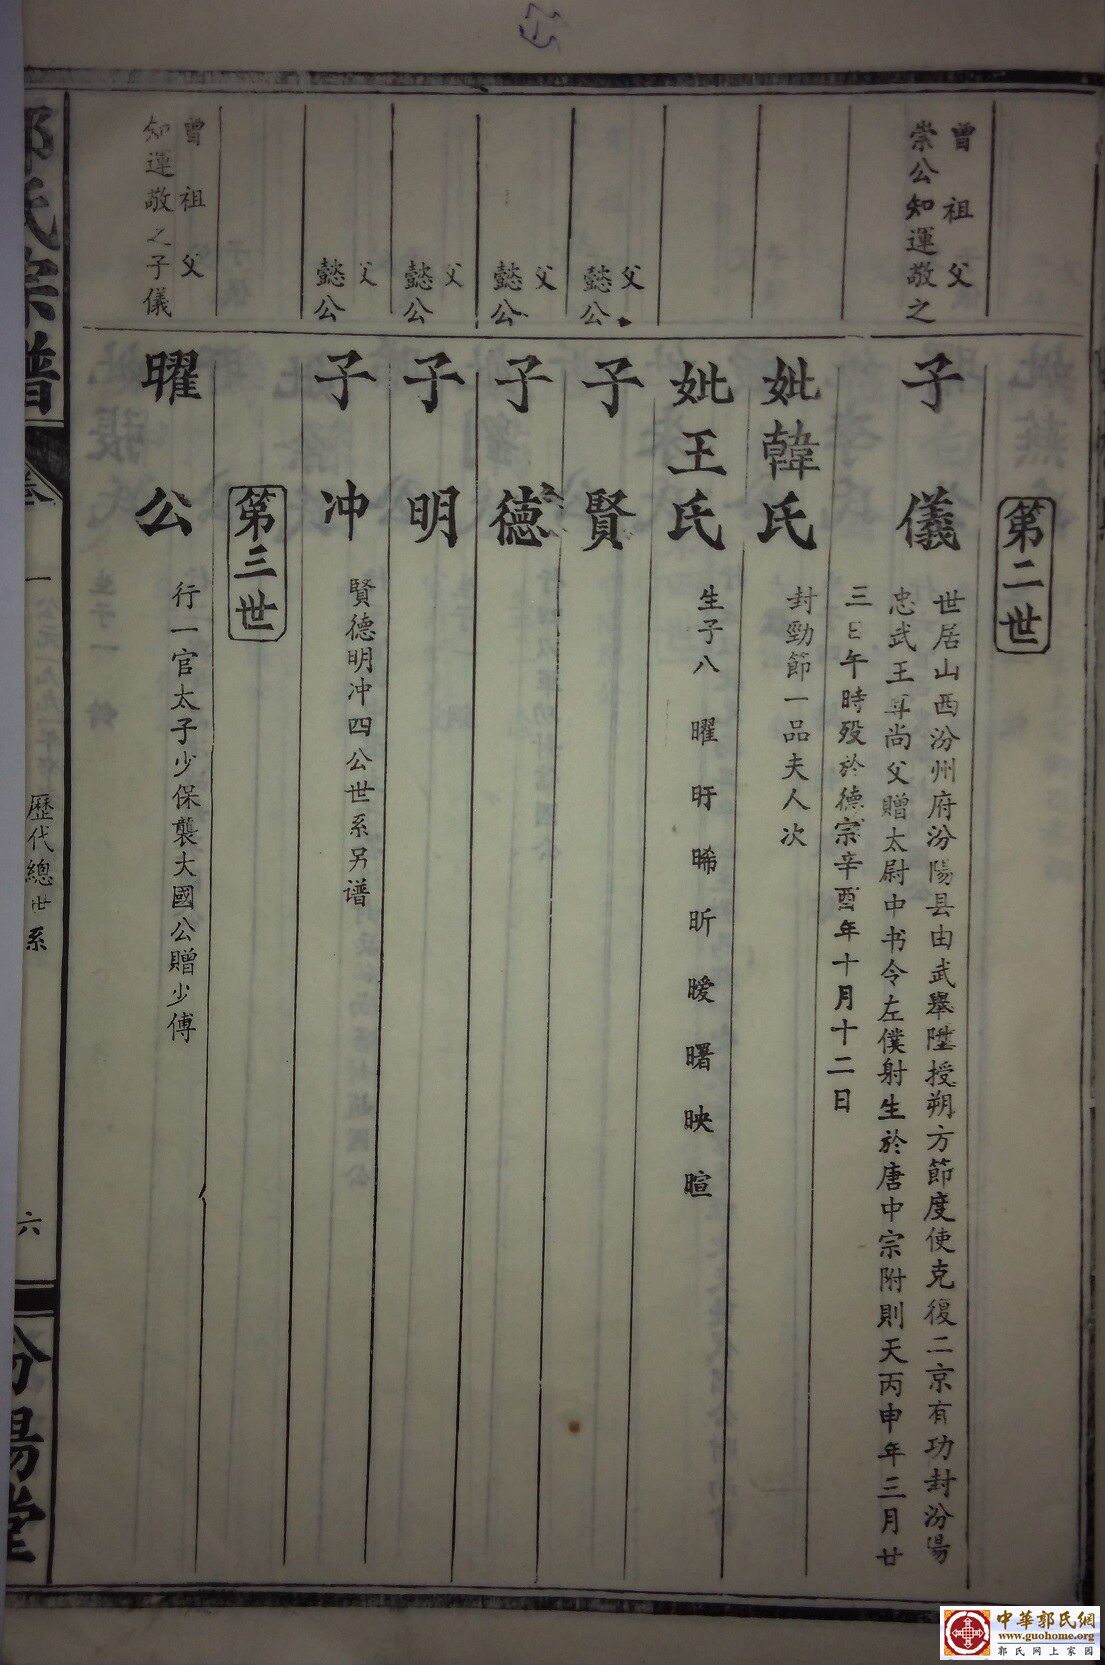 第二世
曾祖父
崇公知運敬之
子儀
世居山西汾州府汾陽县由武舉陞授朔方節度使克復二京有功封汾陽
忠武王尊尚父贈太尉中书令左僕射生於唐中宗附則天丙申年三月廿
三日午時殁於德宗辛酉年十月十二日
妣韓氏
封勁節一品夫人次
妣王氏
生子八 曜 旴 晞 昕 曖 曙 映 暄
父
懿公
子賢
父
懿公
子德
父
懿公
子明
父
懿公
子冲
賢德明冲四公世系另谱
第三世
曾祖父
知運敬之子儀
曜公
行一官太子少保襲大國公贈少傅
郭氏宗譜
卷一
歷代總世系
六
汾陽堂
中華郭氏網
www.guohome.org
郭氏网上家园